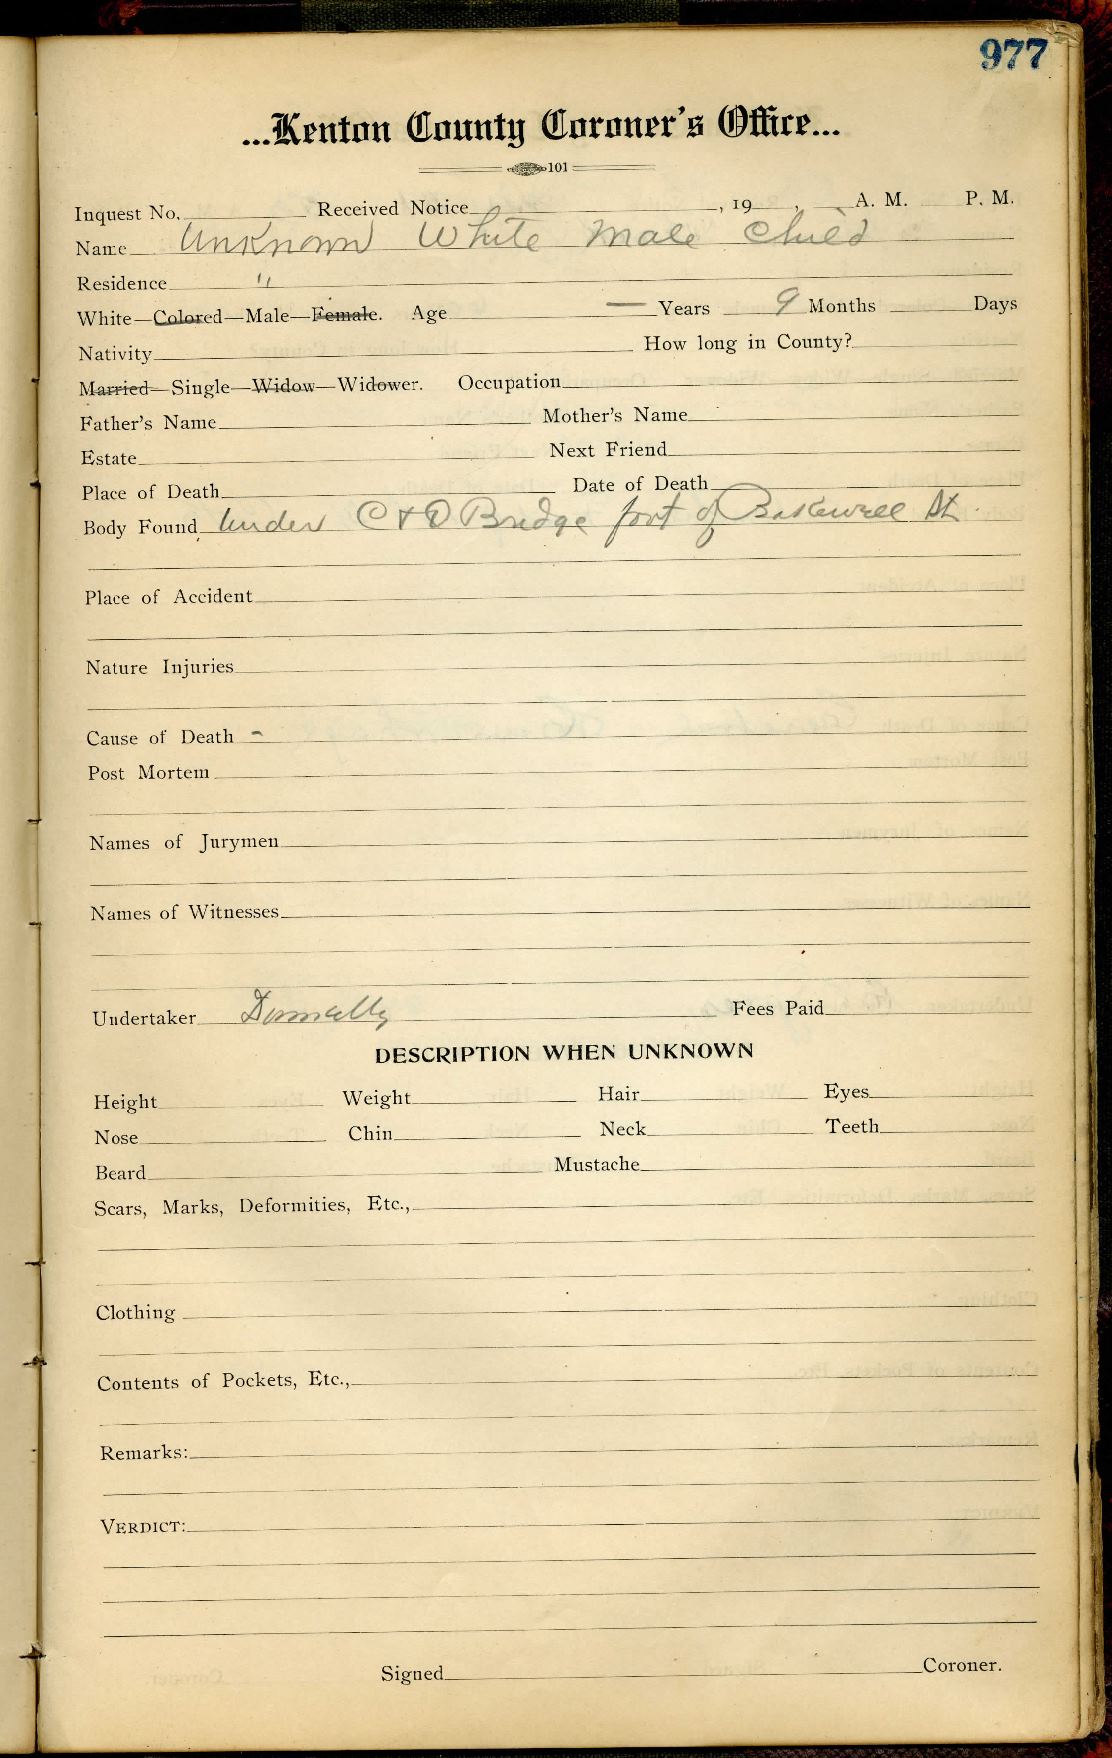 977
...Kenton County Coroner's Office...
101
Inquest No. Received Notice , 19 , A. M. P. M.
Name Unknown White Male Child
Residence "
White—Colored—Male—Female. Age — Years 9 Months Days
Nativity How long in County?
Married—Single—Widow—Widower. Occupation
Father's Name Mother's Name
Estate Next Friend
Place of Death Date of Death
Body Found Under C + O Bridge foot of Bakewell St
Place of Accident
Nature Injuries
Cause of Death -
Post Mortem
Names of Jurymen
Names of Witnesses
Undertaker Donnelly Fees Paid
DESCRIPTION WHEN UNKNOWN
Height Weight Hair Eyes
Nose Chin Neck Teeth
Beard Mustache
Scars, Marks, Deformities, Etc.,
Clothing
Contents of Pockets, Etc.,
Remarks:
VERDICT:
Signed Coroner.